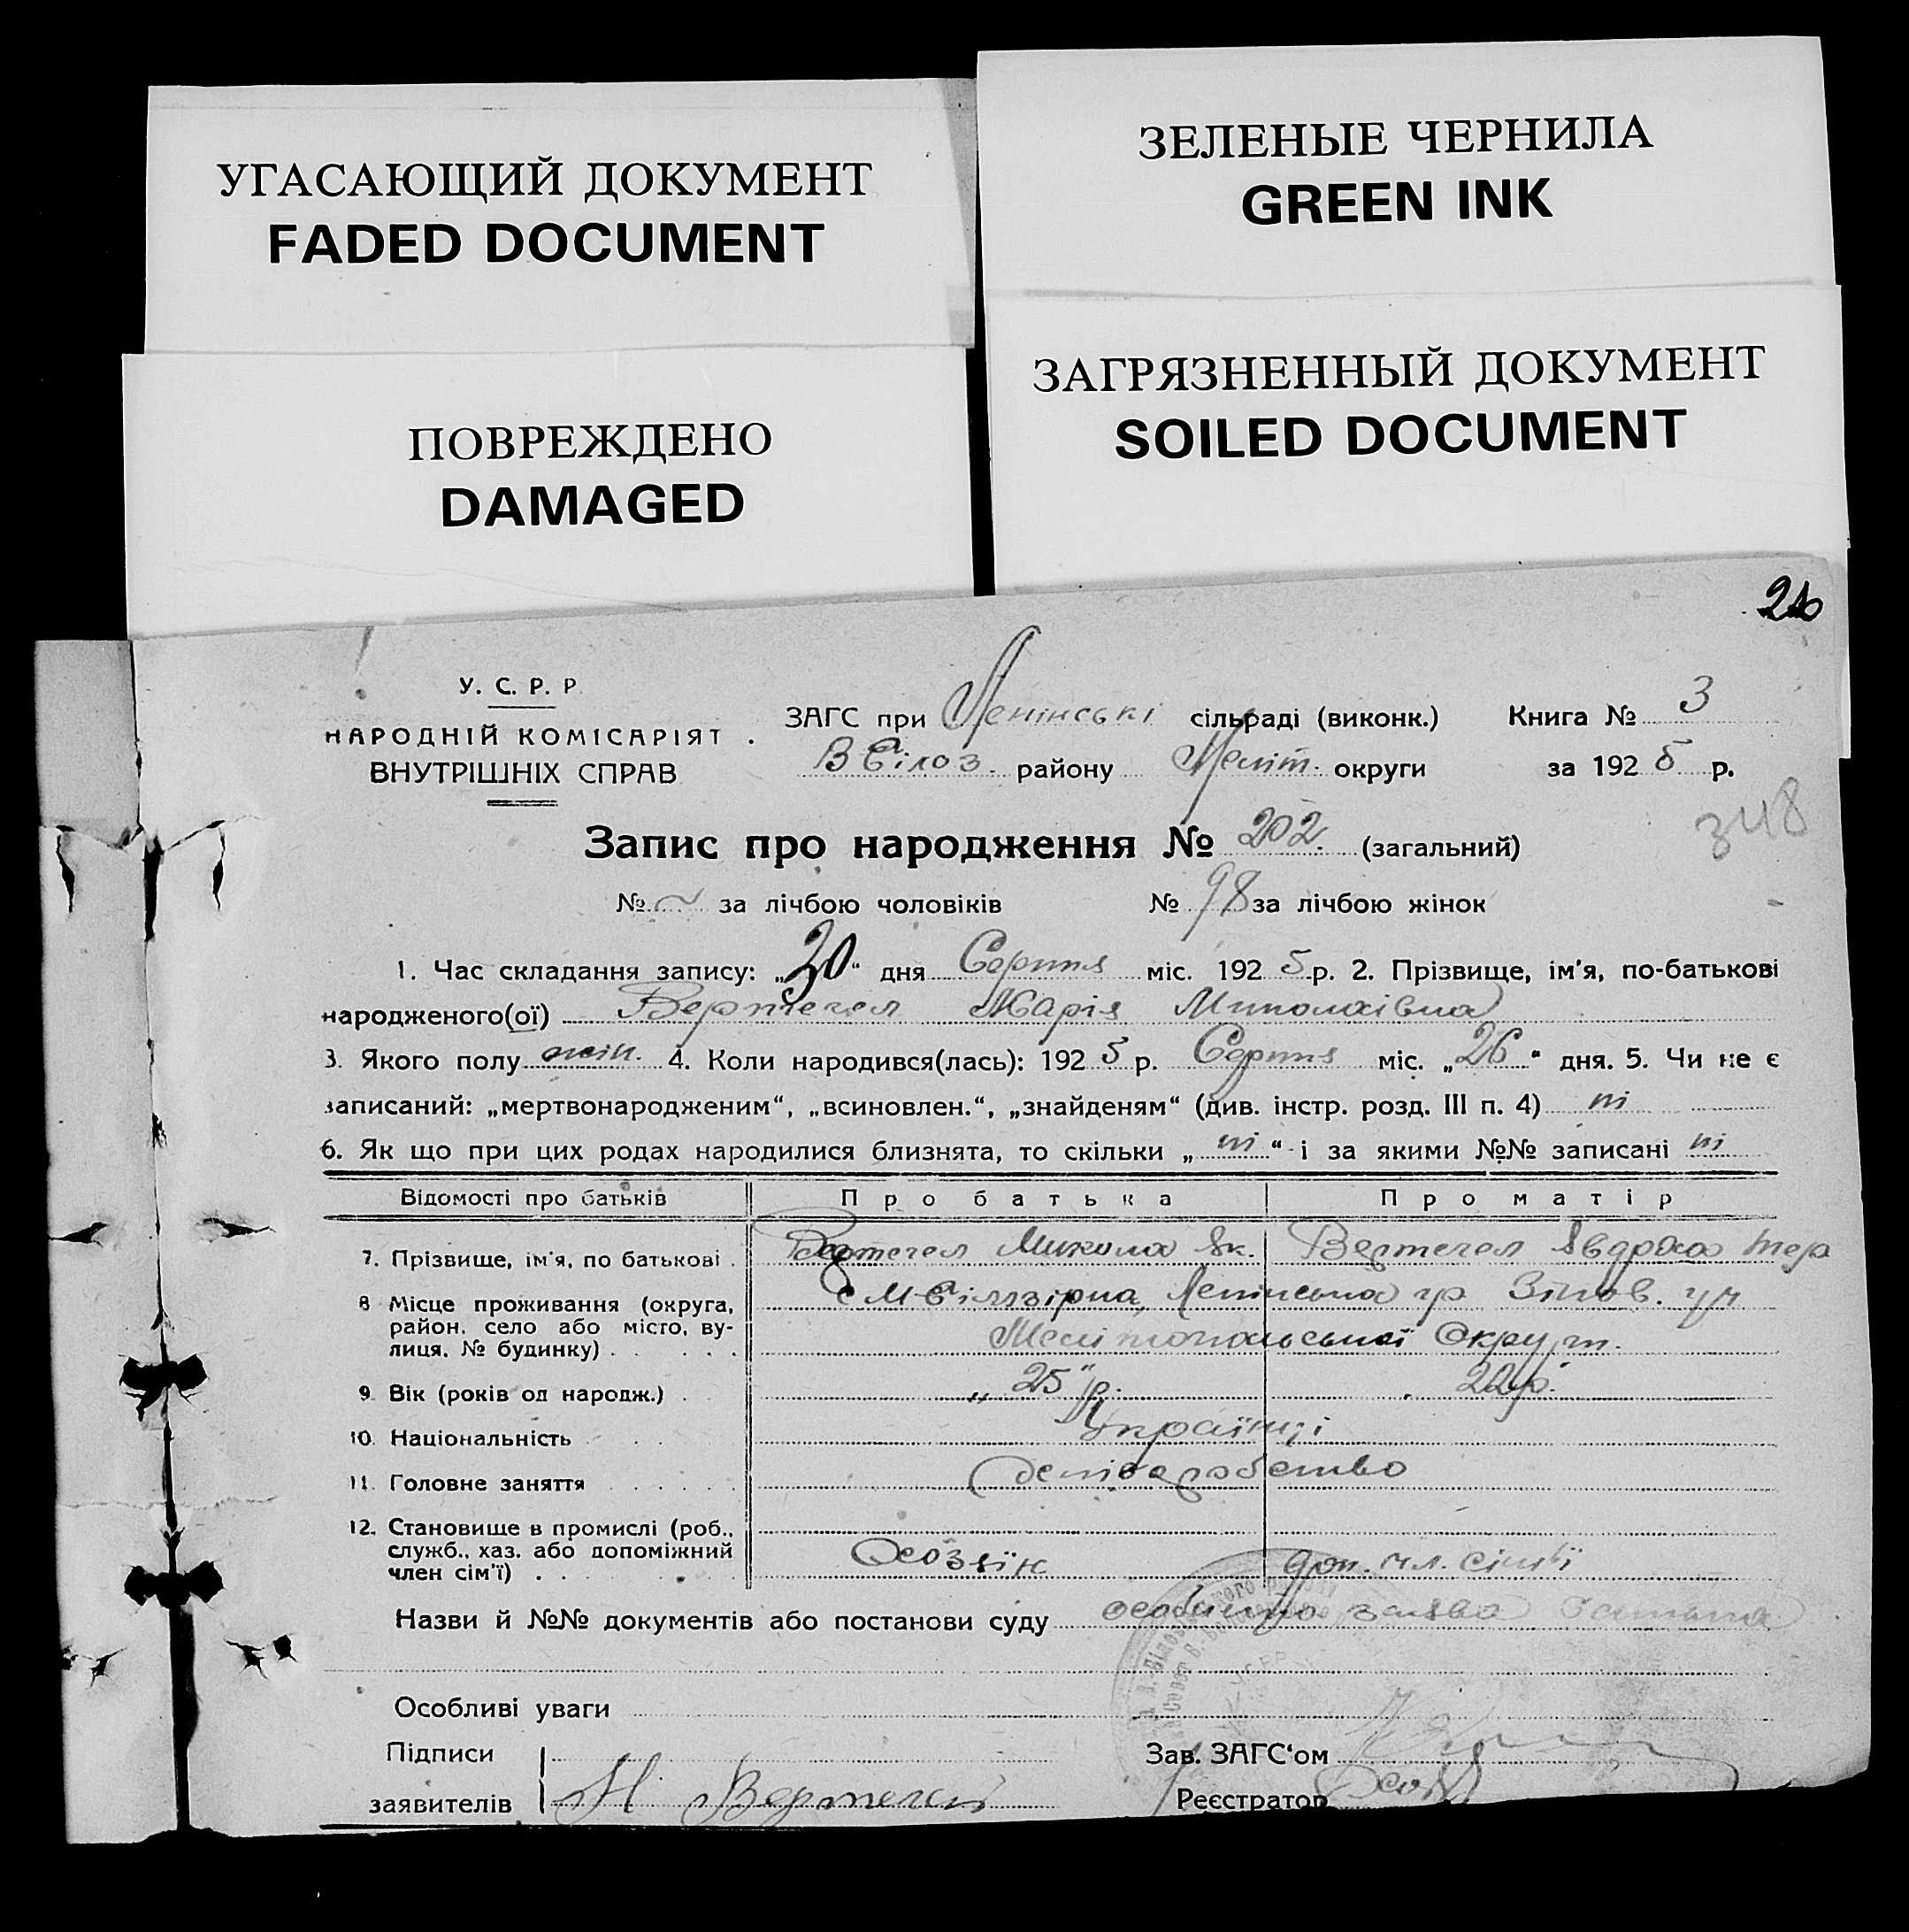 УГАСАЮЩИЙ ДОКУМЕНТ
FADED DOCUMENT
ЗЕЛЕНЫЕ ЧЕРНИЛА
GREEN INK
ПОВРЕЖДЕНО
DAMAGED
ЗАГРЯЗНЕННЫЙ ДОКУМЕНТ
SOILED DOCUMENT
У. С. Р. Р.
НАРОДНІЙ КОМІСАРІЯТ
ВНУТРІШНІХ СПРАВ
ЗАГС при Ленінські сільраді (виконк.) Книга № 3
В Білоз. району Меліт. округи за 192 5 р.
348
Запис про народження № 202 (загальний)
№ за лічбою чоловіків № 98 за лічбою жінок
1. Час складання запису: „30“ дня Серпня міс. 192 5 р. 2. Прізвище, ім'я, по-батькові
народженого(ої) Вертегел Марія Миколаївна
3. Якого полу жін. 4. Коли народився(лась): 192 5 р. Серпня міс. „26“ дня. 5. Чи не є
записаний: „мертвонародженим“, „всиновлен.“, „знайденям“ (див. інстр. розд. III п. 4) ні
6. Як що при цих родах народилися близнята, то скільки „ ні “ і за якими №№ записані ні
Відомості про батьків Про батька Про матір
7. Прізвище, ім'я, по батькові . Вертегел Микола Як. Вертегел
8 Місце проживання (округа,
район, село або місто, ву-
лиця, № будинку) . . . . .
Мелітопольської Округи
9. Вік (років од народж.) . „25“ р. 22 р.
10. Національність Українці
11. Головне заняття
12. Становище в промислі (роб.,
служб., хаз. або допоміжний
член сім'ї) . . Хозяїн доп. чл. сім'ї
Назви й №№ документів або постанови суду особиста заява батька
Особливі уваги
Підписи
заявителів Н Вертегел
Зав. ЗАГС'ом
Реєстратор